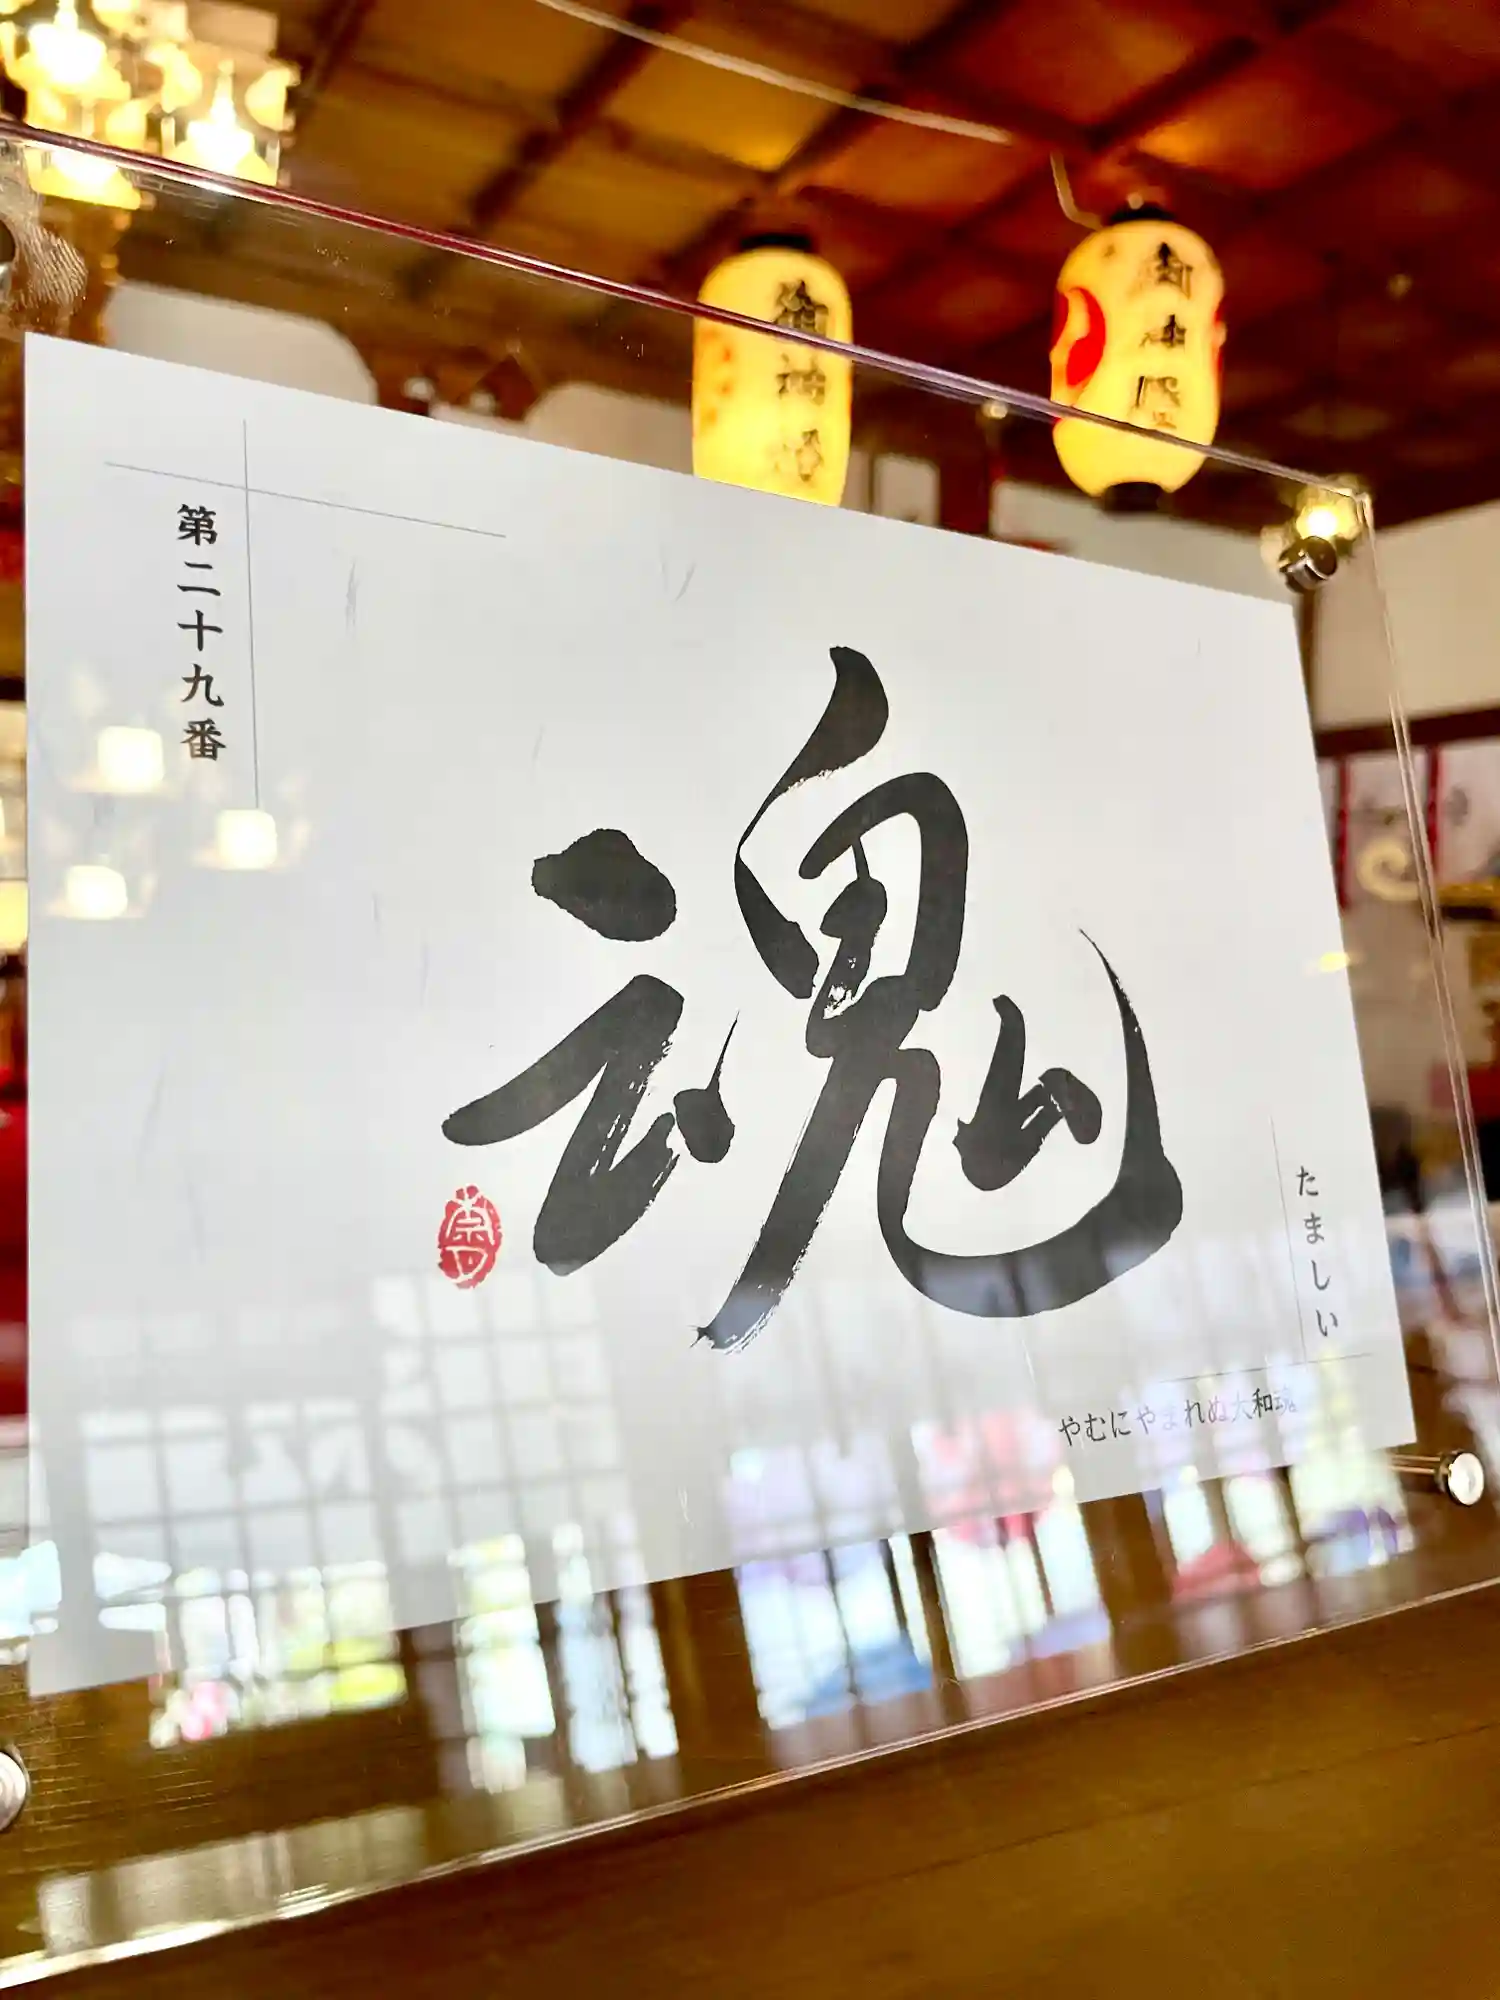 第二十九番
魂
たましい
やむにやまれぬ大和魂